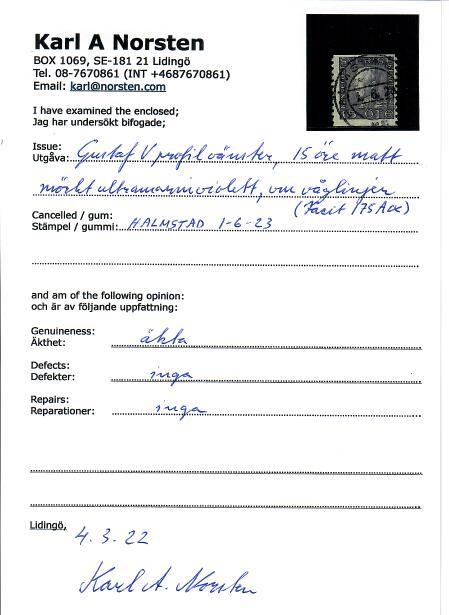 Karl A Norsten
BOX 1069, SE-181 21 Lidingö
Tel. 08-7670861 (INT +4687670861)
Email: karl@norsten.com
I have examined the enclosed;
Jag har undersökt bifogade;
Issue:
Utgåva: Gustaf V profil vänster, 15 öre matt
mörkt ultramarinviolett, vm våglinjer
(Facit 175Acx)
Cancelled / gum:
Stämpel / gummi: HALMSTAD 1-6-23
and am of the following opinion:
och är av följande uppfattning:
Genuineness:
Äkthet: äkta
Defects:
Defekter: inga
Repairs:
Reparationer: inga
Lidingö, 4.3.22
Karl A. Norsten